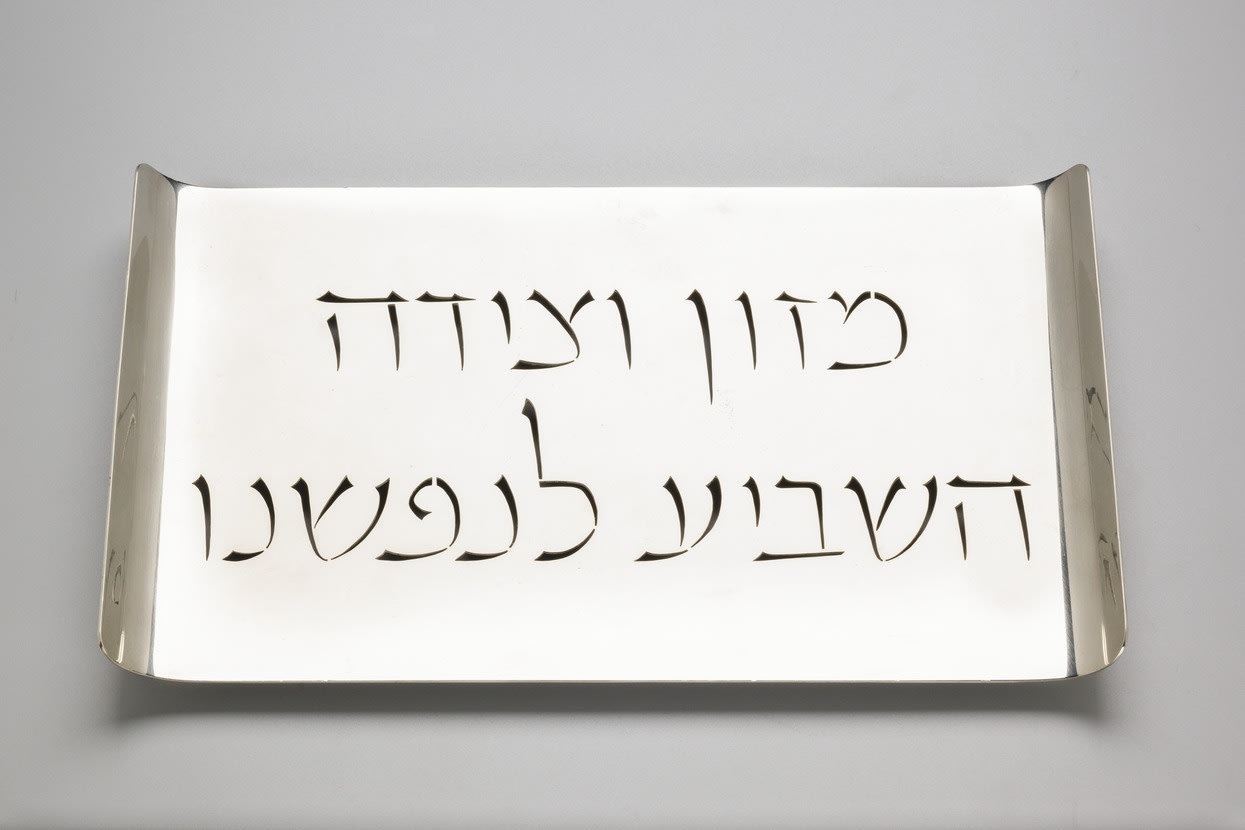 מזון וצידה
השביע לנפשנו